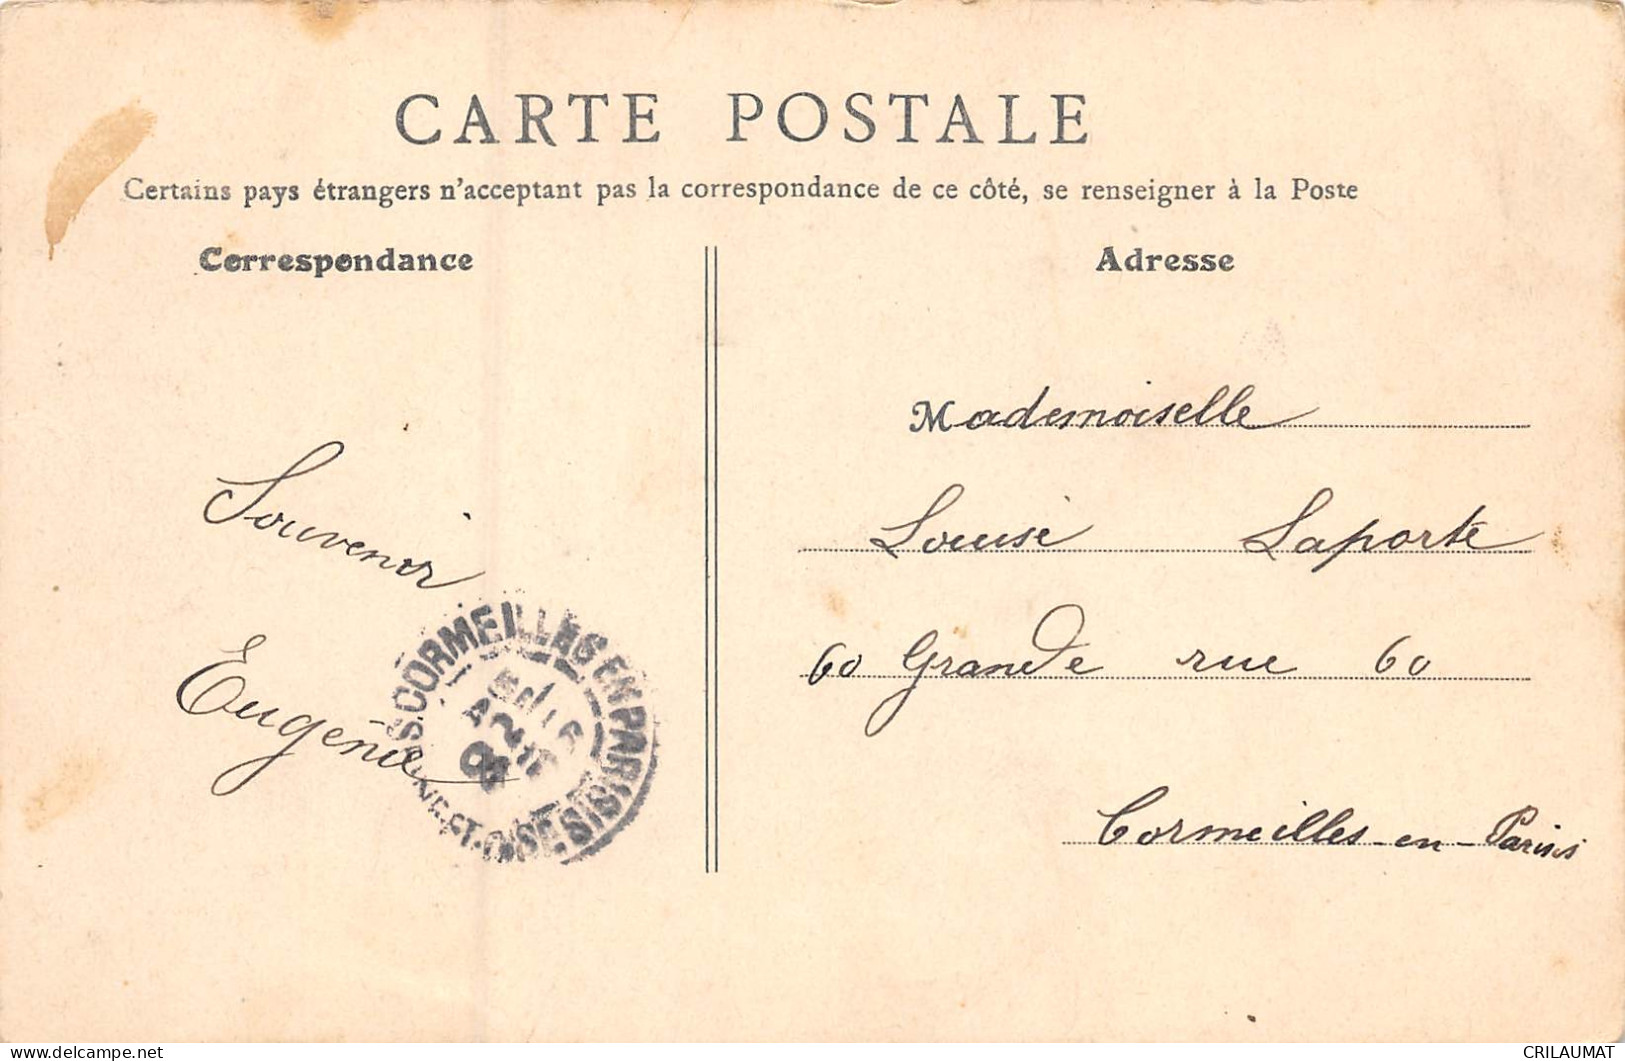 CARTE POSTALE
Certains pays étrangers n'acceptant pas la correspondance de ce côté, se renseigner à la Poste
Correspondance
Souvenir
Eugénie
CORMEILLES EN PARISIS
Adresse
Mademoiselle
Louise Laporte
60 Grande rue 60
Cormeilles-en-Parisis
www.delcampe.net
CRILAUMAT